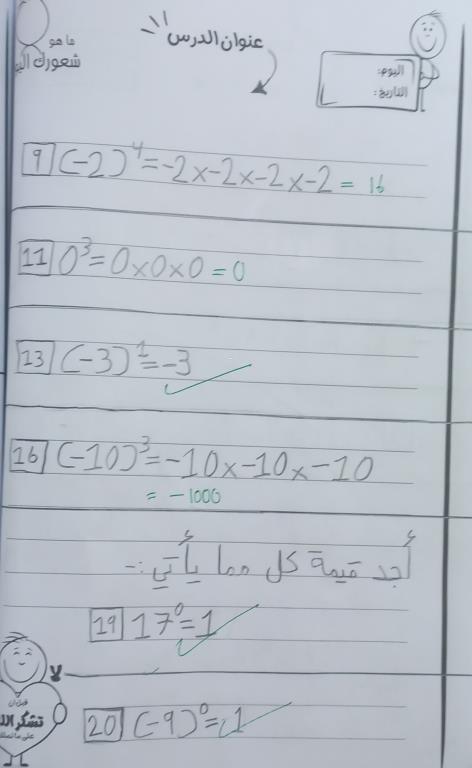 ما هو
شعورك اليو
عنوان الدرس
اليوم:
التاريخ:
9 (-2)⁴=-2×-2×-2×-2 = 16
11 0³=0×0×0=0
13 (-3)¹=-3
16 (-10)³=-10×-10×-10
= -1000
أجد قيمة كل مما يأتي:-
19 17⁰=1
20 (-9)⁰=1
لا
تشكر الله